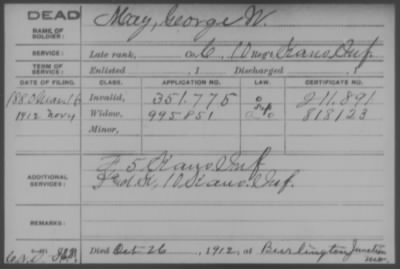 DEAD
NAME OF SOLDIER:
May, George W.
SERVICE:
Late rank, Co. C, 10 Reg't Kans. Inf.
TERM OF SERVICE:
Enlisted , 1 Discharged , 1
DATE OF FILING. CLASS. APPLICATION NO. LAW. CERTIFICATE NO.
1880 Mar 16 Invalid, 351.775 211.891
1912 Nov 4 Widow, 995851 818123
Minor,
ADDITIONAL SERVICES:
F 5 Kans. Inf
10 Kans. Inf.
REMARKS:
Died Oct 26, 1912, at Burlington Junction Mo.